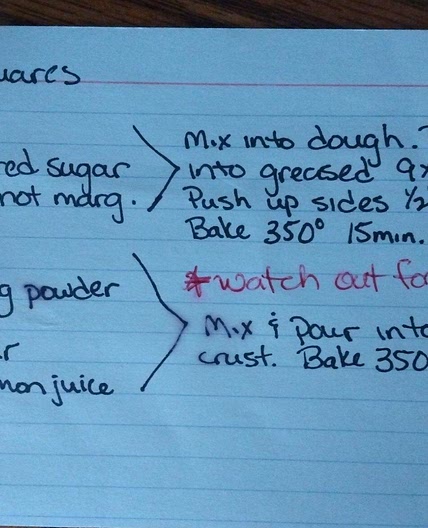 uares
Mix into dough.
red sugar
into greased 9x
not marg.
Push up sides 1/2
Bake 350° 15min.
g powder
*watch out fo
Mix & Pour into
r
crust. Bake 350
mon juice